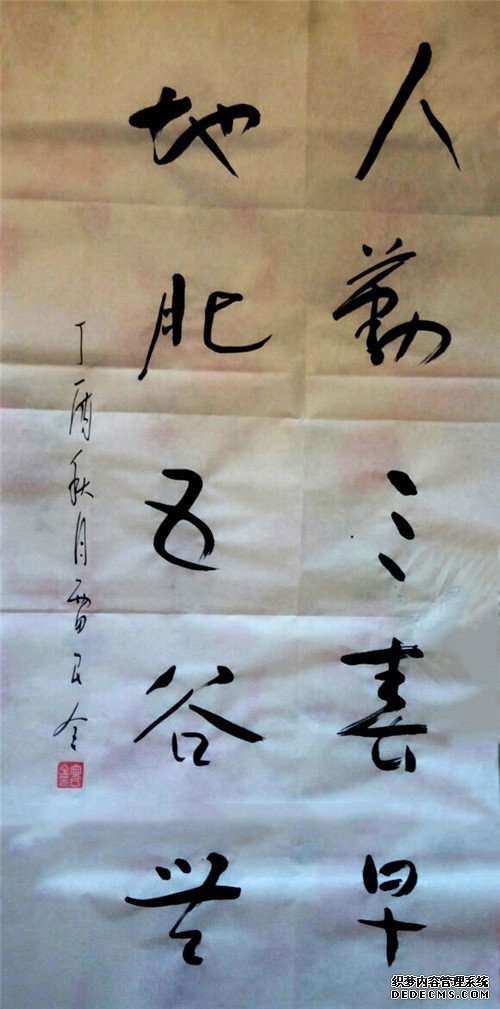 人勤三春早
地肥五谷豐
丁酉秋月雷民全
织梦内容管理系统
DEDECMS.COM